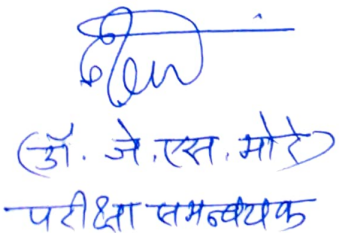 (डॉ. जे. एस. मोरे)
परीक्षा समन्वयक